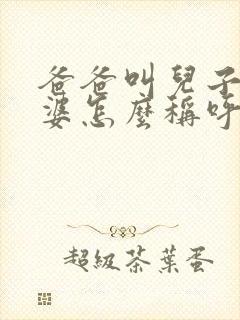 爸爸叫兒子
婆怎麼稱呼
超級茶葉蛋